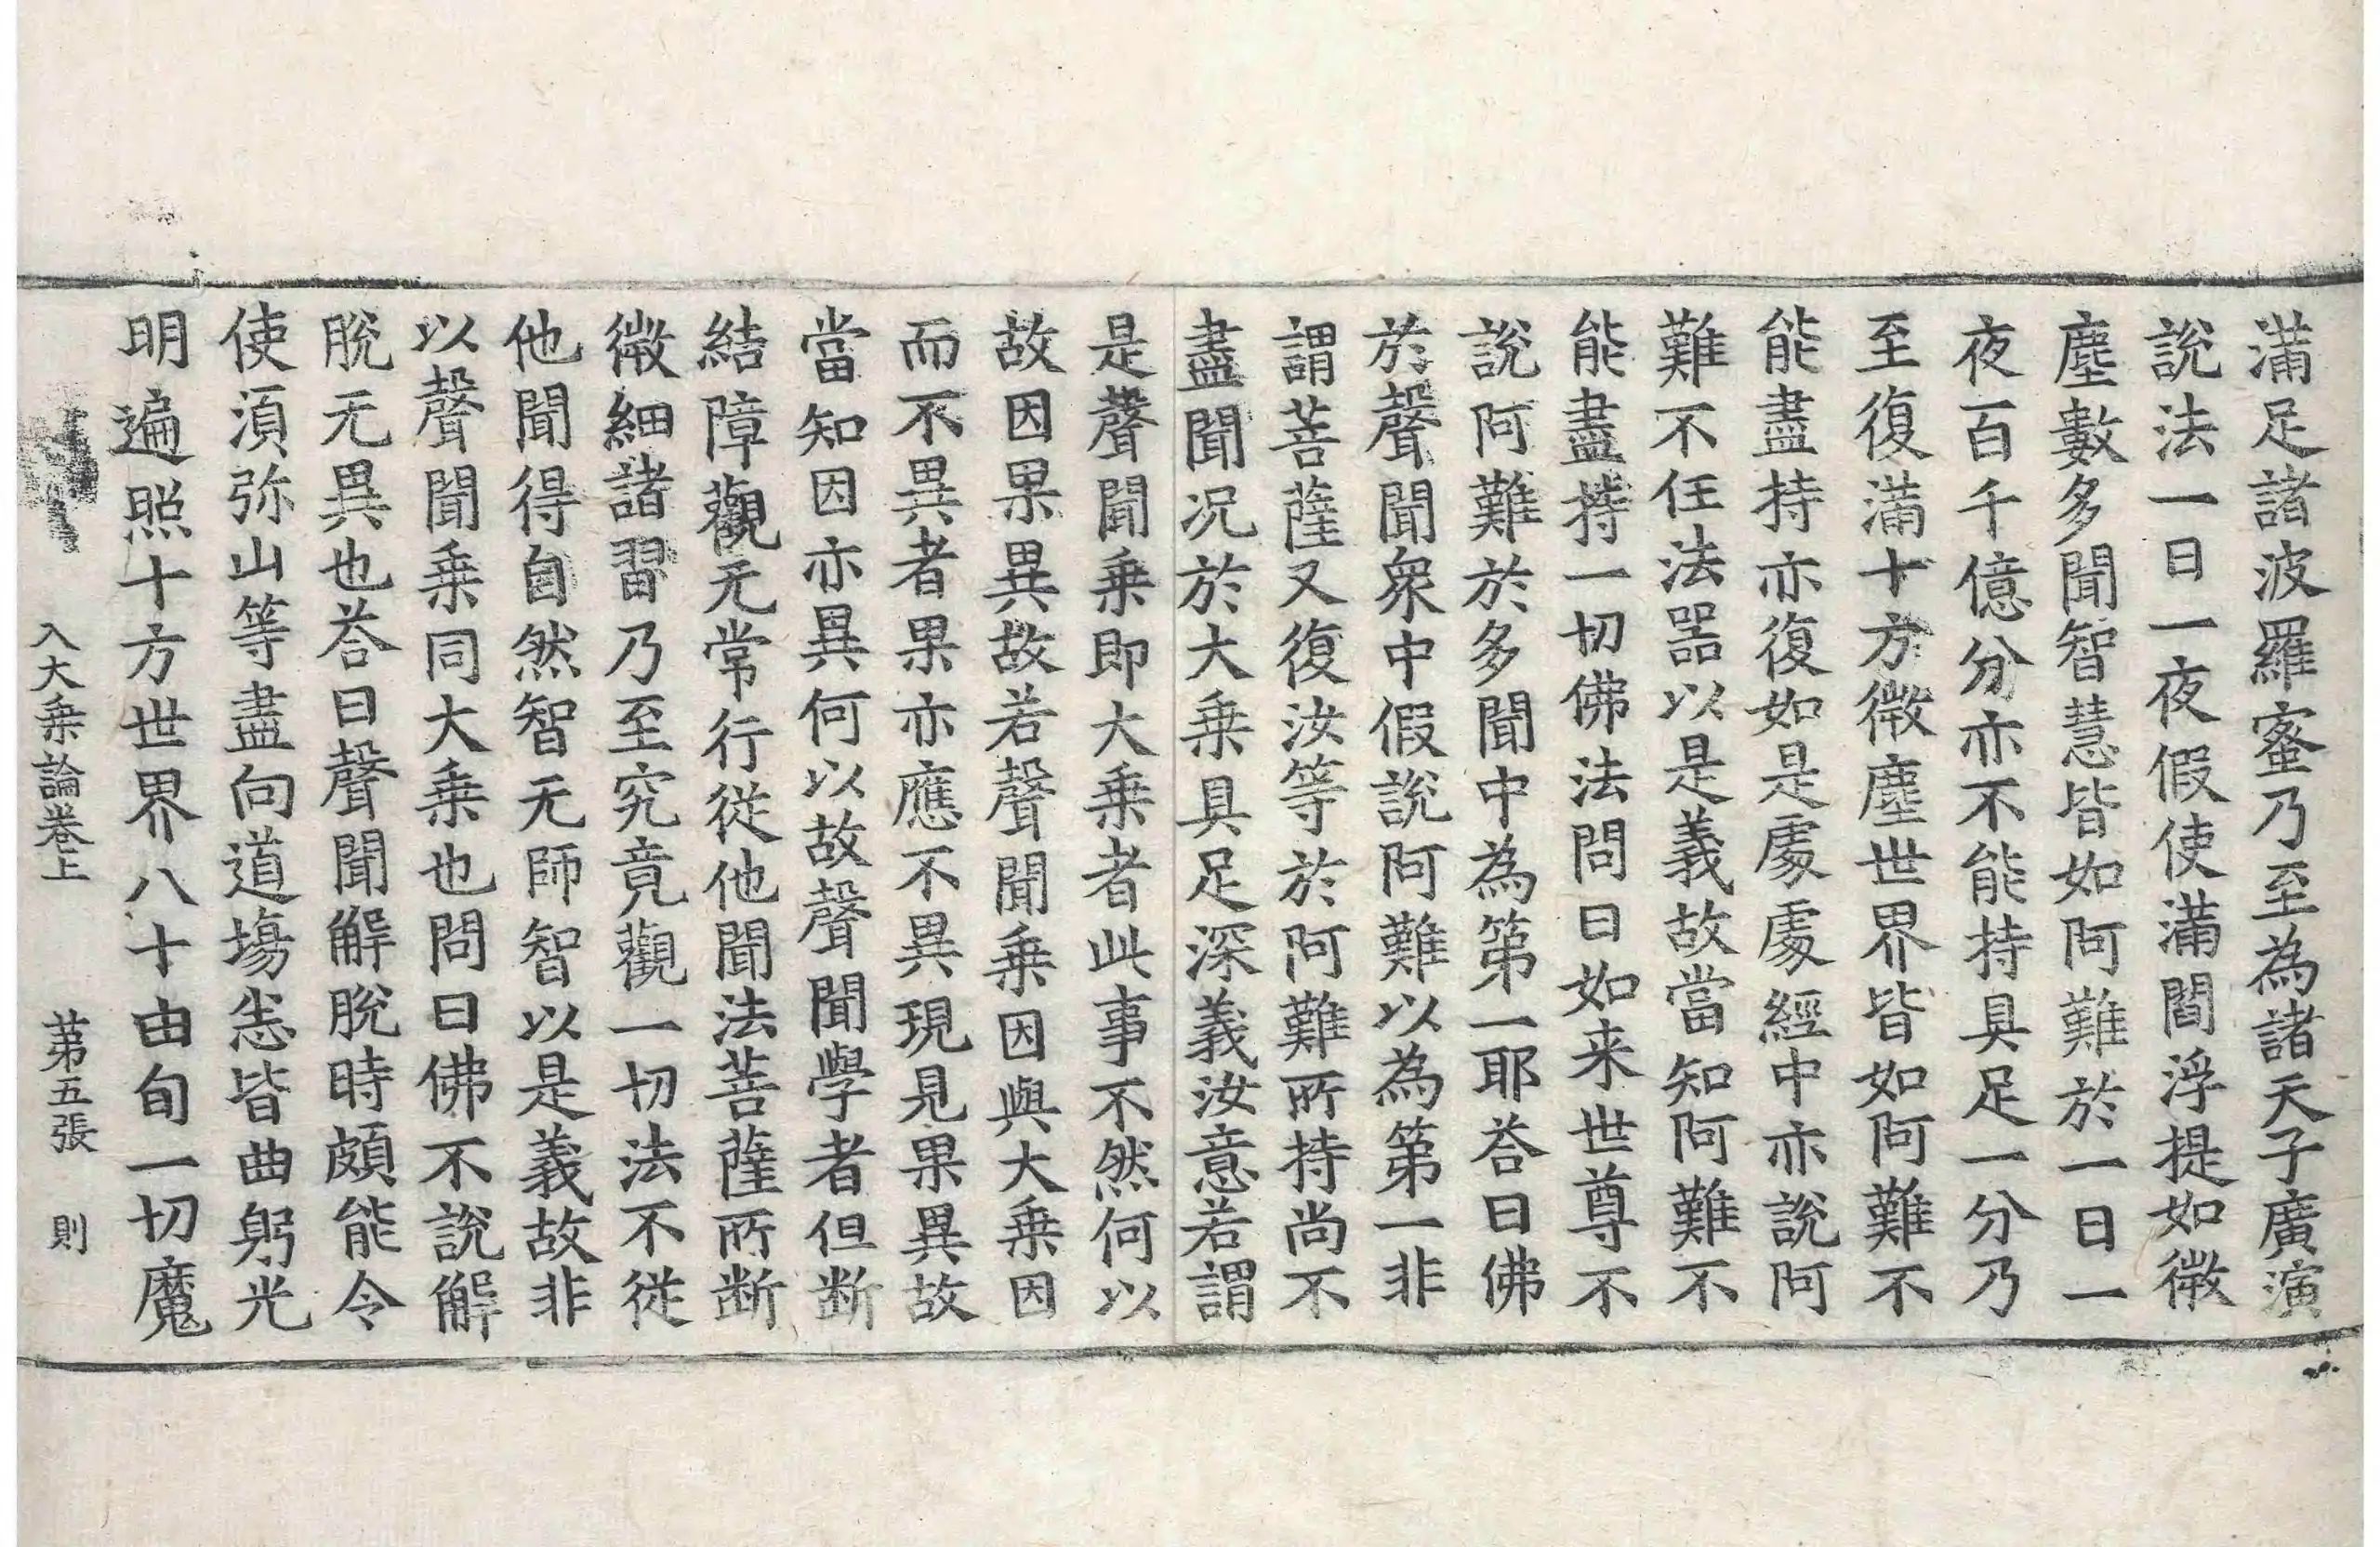 滿足諸波羅蜜乃至為諸天子廣演
說法一日一夜假使滿閻浮提如微
塵數多聞智慧皆如阿難於一日一
夜百千億分亦不能持具足一分乃
至復滿十方微塵世界皆如阿難不
能盡持亦復如是處處經中亦說阿
難不任法器以是義故當知阿難不
能盡持一切佛法問曰如来世尊不
說阿難於多聞中為第一耶荅曰佛
於聲聞衆中假說阿難以為第一非
謂菩薩又復汝等於阿難所持尚不
盡聞况於大乗具足深義汝意若謂
是聲聞乗即大乗者此事不然何以
故因果異故若聲聞乗因與大乗因
而不異者果亦應不異現見果異故
當知因亦異何以故聲聞學者但断
結障觀无常行從他聞法菩薩所断
微細諸習乃至究竟觀一切法不從
他聞得自然智无師智以是義故非
以聲聞乗同大乗也問曰佛不說解
脫无異也荅曰聲聞解脫時頗能令
使湏弥山等盡向道塲悉皆曲躬光
明遍照十方世界八十由旬一切魔
入大乗論卷上　第五張　則